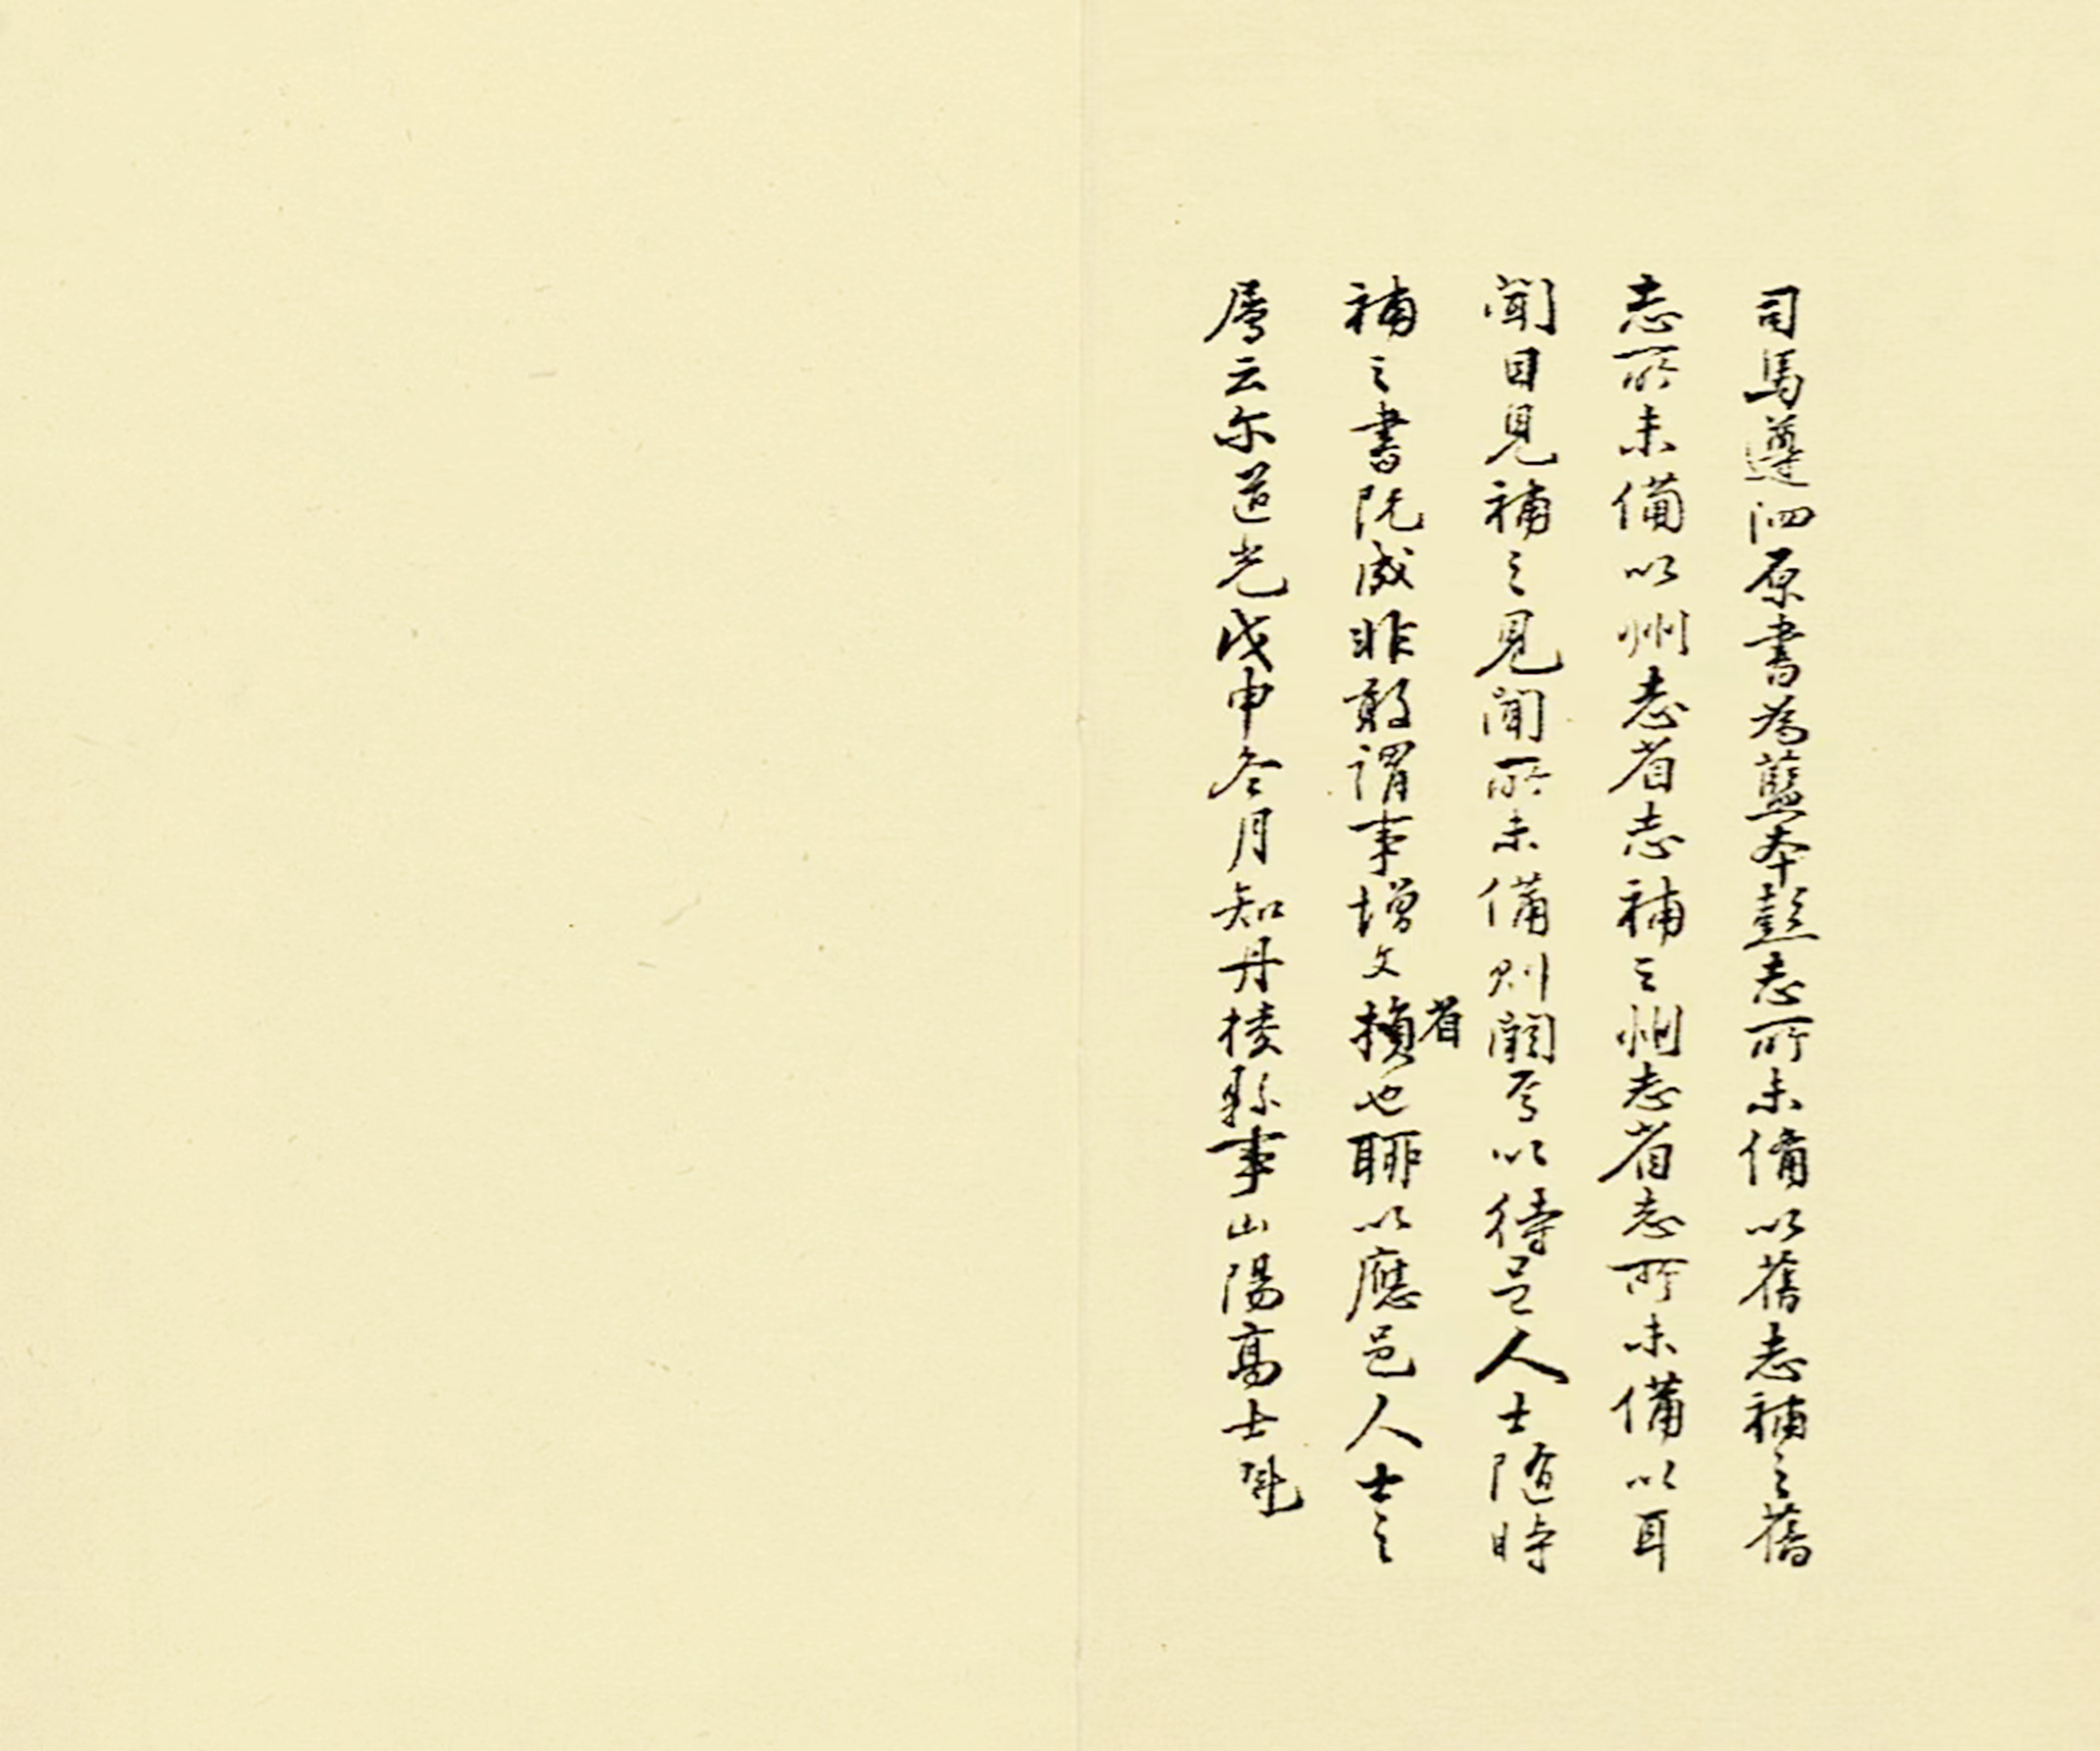 司馬遵泗原書為藍本彭志所未備以舊志補之舊
志所未備以州志省志補之州志省志所未備以耳
聞目見補之見聞所未備則闕焉以待邑人士隨時
補之書既成非敢謂事增文損也聊以應邑人士之
省
屬云尔道光戊申冬月知丹棱縣事山陽高士魁